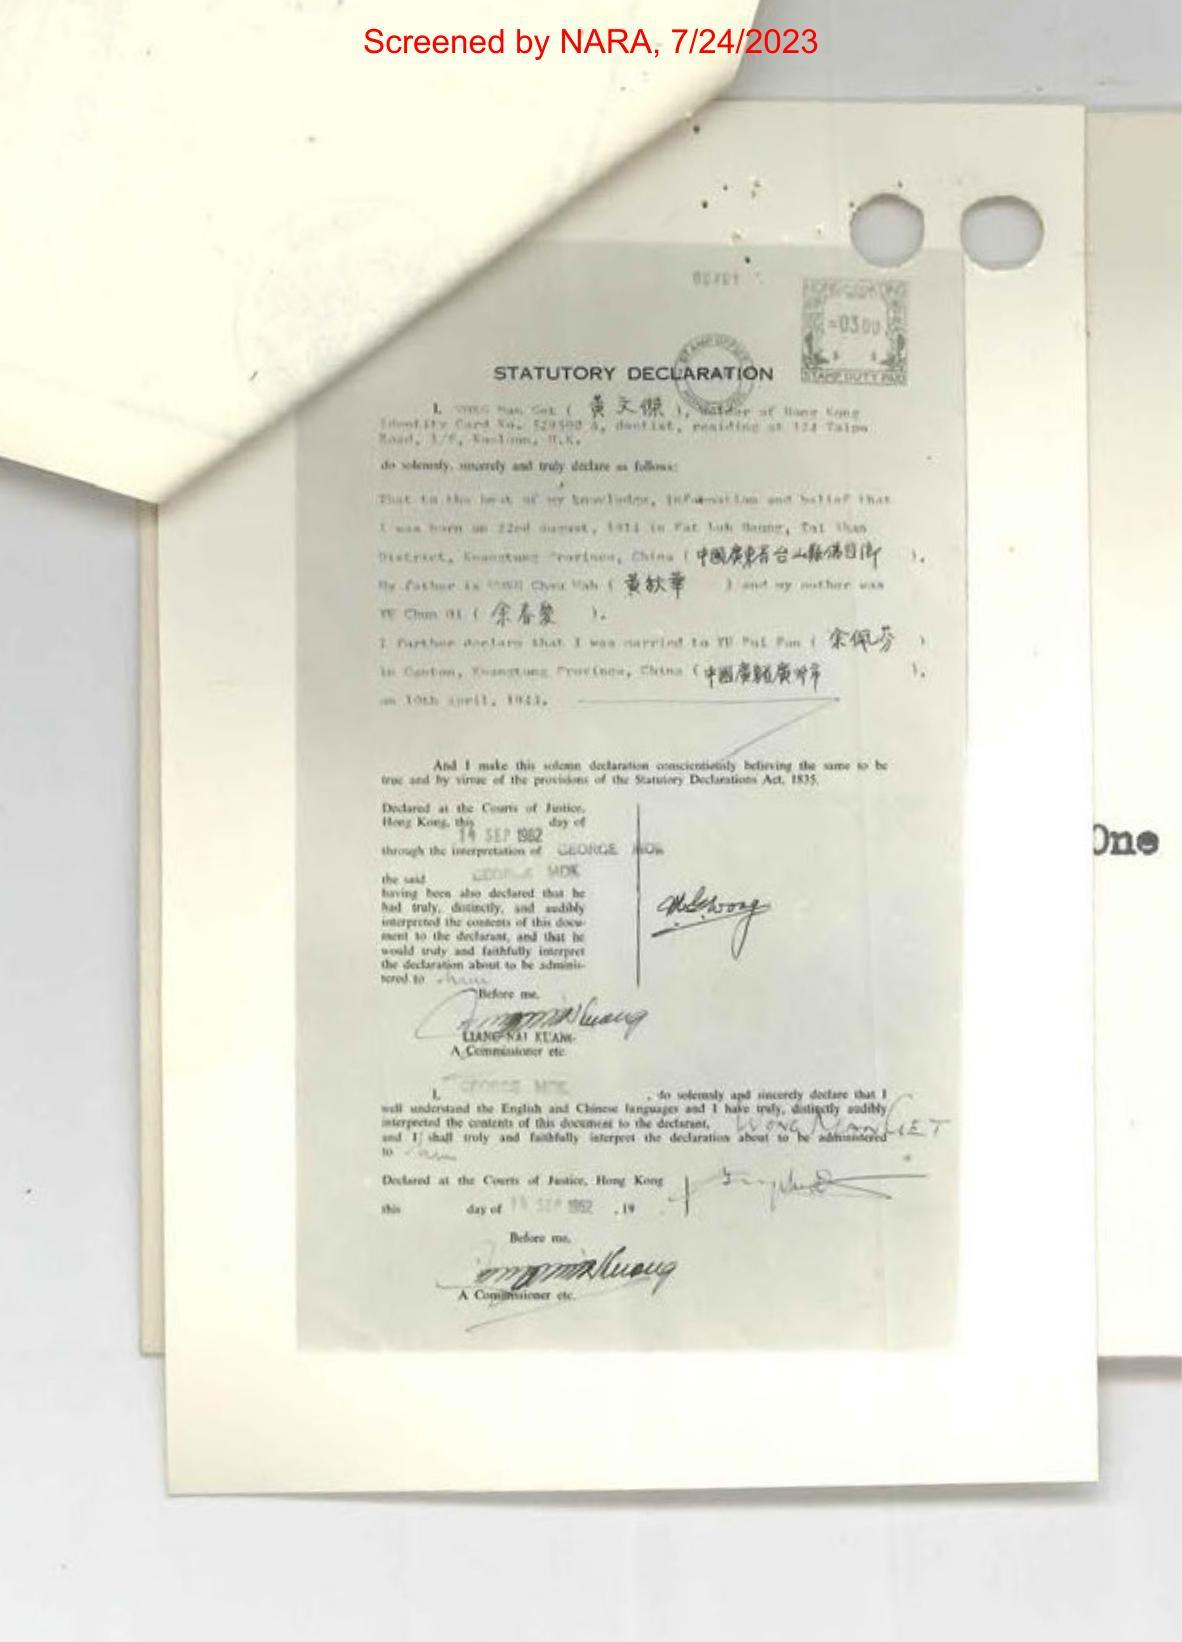 Screened by NARA, 7/24/2023
HONG KONG
=0300
STAMP DUTY PAID
STAMP OFFICE
STATUTORY DECLARATION
I, WONG Man Get ( 黃文傑 ), holder of Hong Kong
Identity Card No. A, dentist, residing at 124 Taipo
Road, 1/F, Kowloon, H.K.
do solemnly, sincerely and truly declare as follows:
That to the best of my knowledge, information and belief that
I was born on 22nd August, in Fat Luk Heung, Toi Shan
District, Kwangtung Province, China ( 中國廣東省台山縣 ).
My father is WONG Chau Wah ( 黃秋華 ) and my mother was
YU Chun Oi ( 余春愛 ).
I further declare that I was married to YU Pui Fun ( 余佩芬 )
in Canton, Kwangtung Province, China ( 中國廣東省廣州市 ).
on 10th April,
And I make this solemn declaration conscientiously believing the same to be
true and by virtue of the provisions of the Statutory Declarations Act, 1835.
Declared at the Courts of Justice,
Hong Kong, this day of
14 SEP 1962
through the interpretation of GEORGE MOK
the said GEORGE MOK
having been also declared that he
had truly, distinctly, and audibly
interpreted the contents of this docu-
ment to the declarant, and that he
would truly and faithfully interpret
the declaration about to be adminis-
tered to him
M.G.Wong
Before me,
LIANG NAI KUANG
A Commissioner etc.
I, GEORGE MOK , do solemnly and sincerely declare that I
well understand the English and Chinese languages and I have truly, distinctly audibly
interpreted the contents of this document to the declarant, WONG MAN GET
and I shall truly and faithfully interpret the declaration about to be administered
to him
Declared at the Courts of Justice, Hong Kong
this day of 14 SEP 1962 , 19
Before me,
A Commissioner etc.
One